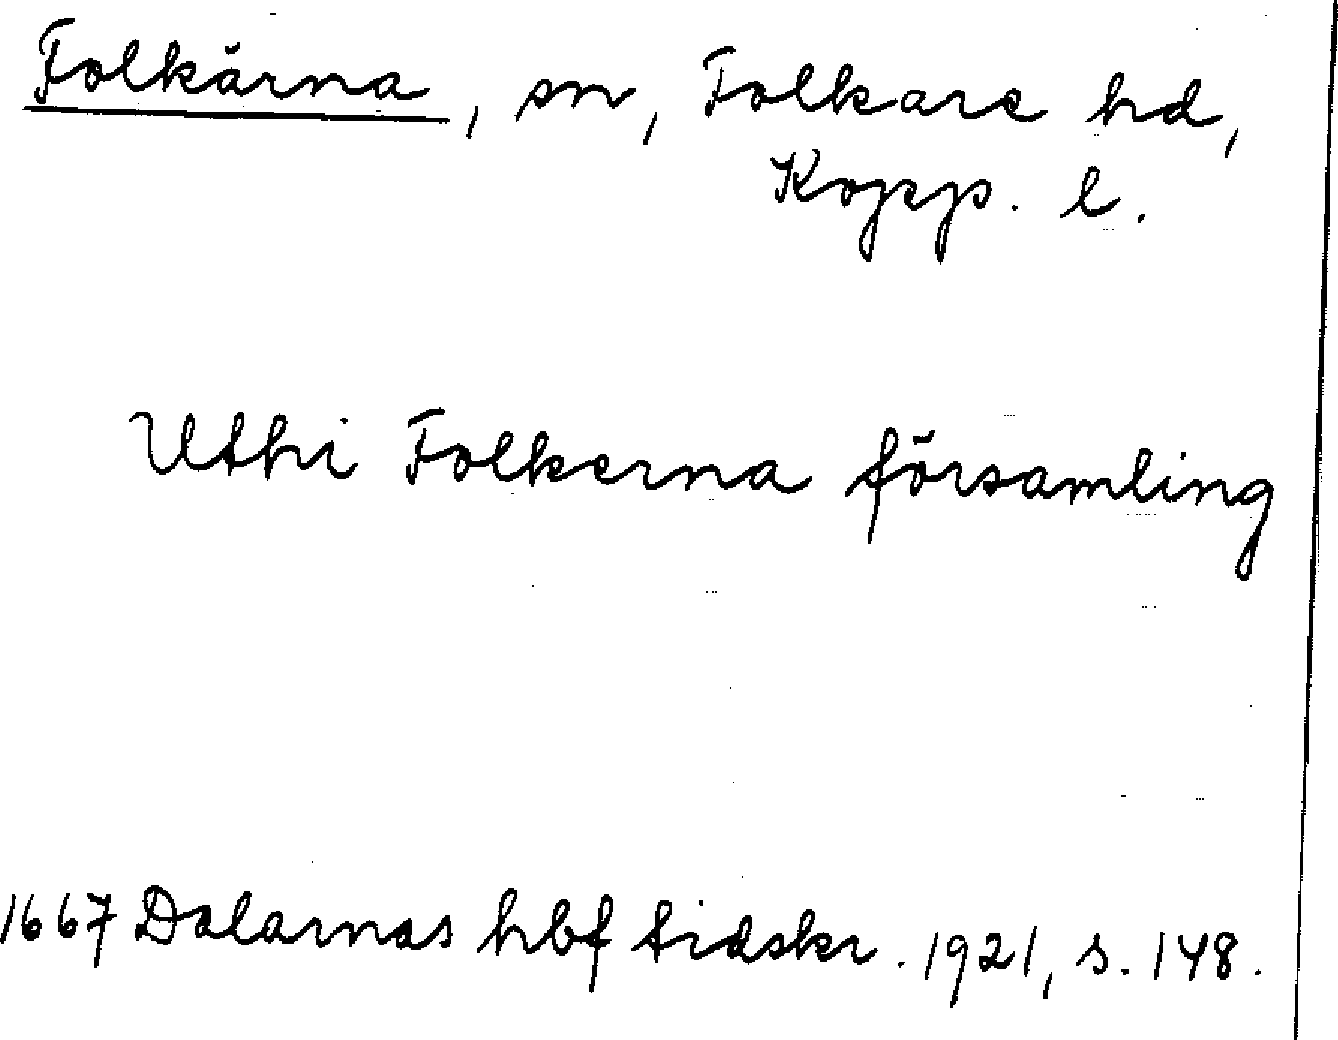 Folkärna, sn, Folkare hd,
Kopp. l.
Uthi Folkerna församling
1667 Dalarnas hbf tidskr. 1921, s. 148.